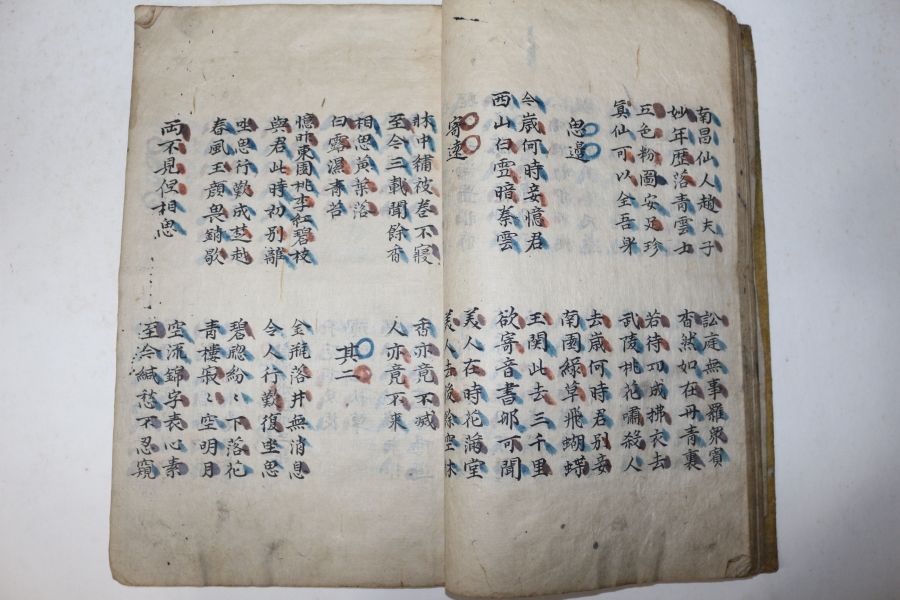 南昌仙人趙夫子
妙年歷落青雲士
訟庭無事羅衆賓
杳然如在丹青裏
五色粉圖安足珍
眞仙可以全吾身
若待功成拂衣去
武陵桃花嘯殺人
思邊
去歲何時君別妾
南園綠草飛蝴蝶
今歲何時妾憶君
西山白雪暗秦雲
玉關此去三千里
欲寄音書那可聞
寄遠
美人在時花滿堂
美人去後餘空牀
牀中繡被卷不寢
至今三載聞餘香
香亦竟不滅
人亦竟不來
相思黃葉落
白露濕青苔
其二
憶昨東園桃李紅碧枝
與君此時初別離
金甁落井無消息
令人行歎復坐思
坐思行歎成楚越
春風玉顏畏銷歇
碧窓紛〻下落花
靑樓寂〻空明月
兩不見但相思
空流錦字表心素
至今緘愁不忍窺